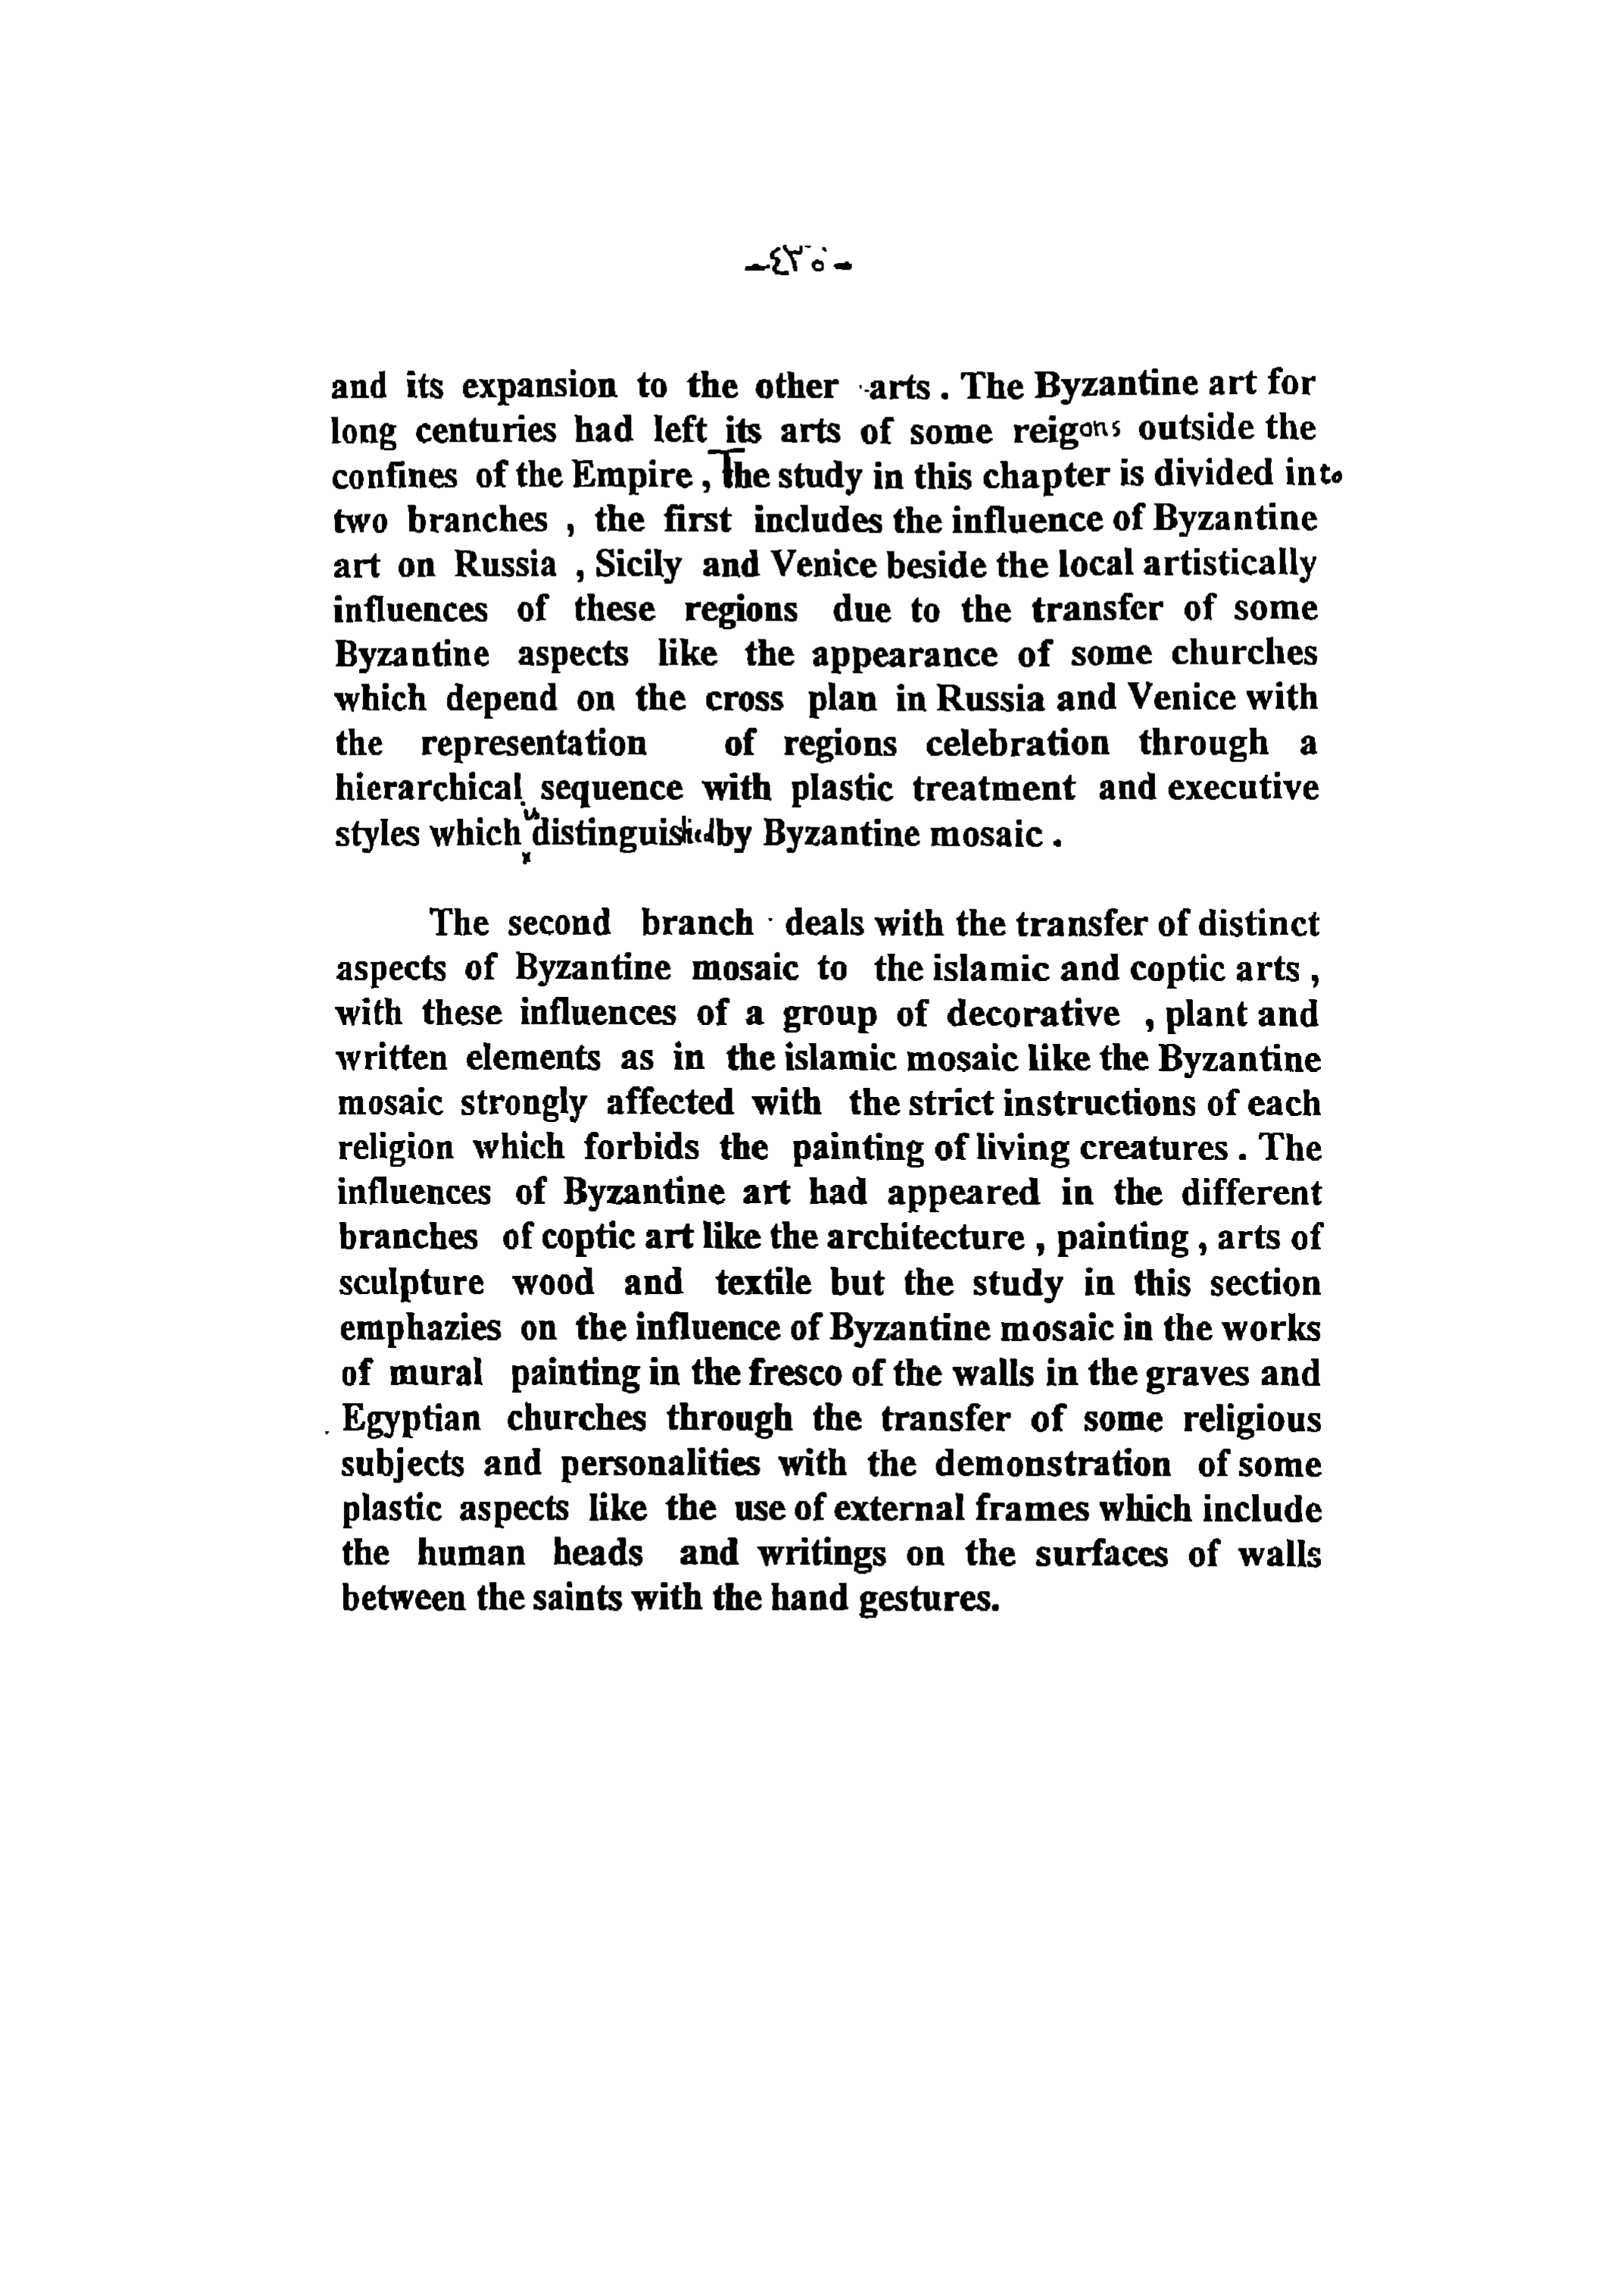 and its expansion to the other arts . The Byzantine art for
long centuries had left its arts of some reigons outside the
confines of the Empire , The study in this chapter is divided into
two branches , the first includes the influence of Byzantine
art on Russia , Sicily and Venice beside the local artistically
influences of these regions due to the transfer of some
Byzantine aspects like the appearance of some churches
which depend on the cross plan in Russia and Venice with
the representation of regions celebration through a
hierarchical sequence with plastic treatment and executive
styles which distinguished by Byzantine mosaic .
The second branch deals with the transfer of distinct
aspects of Byzantine mosaic to the islamic and coptic arts ,
with these influences of a group of decorative , plant and
written elements as in the islamic mosaic like the Byzantine
mosaic strongly affected with the strict instructions of each
religion which forbids the painting of living creatures . The
influences of Byzantine art had appeared in the different
branches of coptic art like the architecture , painting , arts of
sculpture wood and textile but the study in this section
emphazies on the influence of Byzantine mosaic in the works
of mural painting in the fresco of the walls in the graves and
Egyptian churches through the transfer of some religious
subjects and personalities with the demonstration of some
plastic aspects like the use of external frames which include
the human heads and writings on the surfaces of walls
between the saints with the hand gestures.